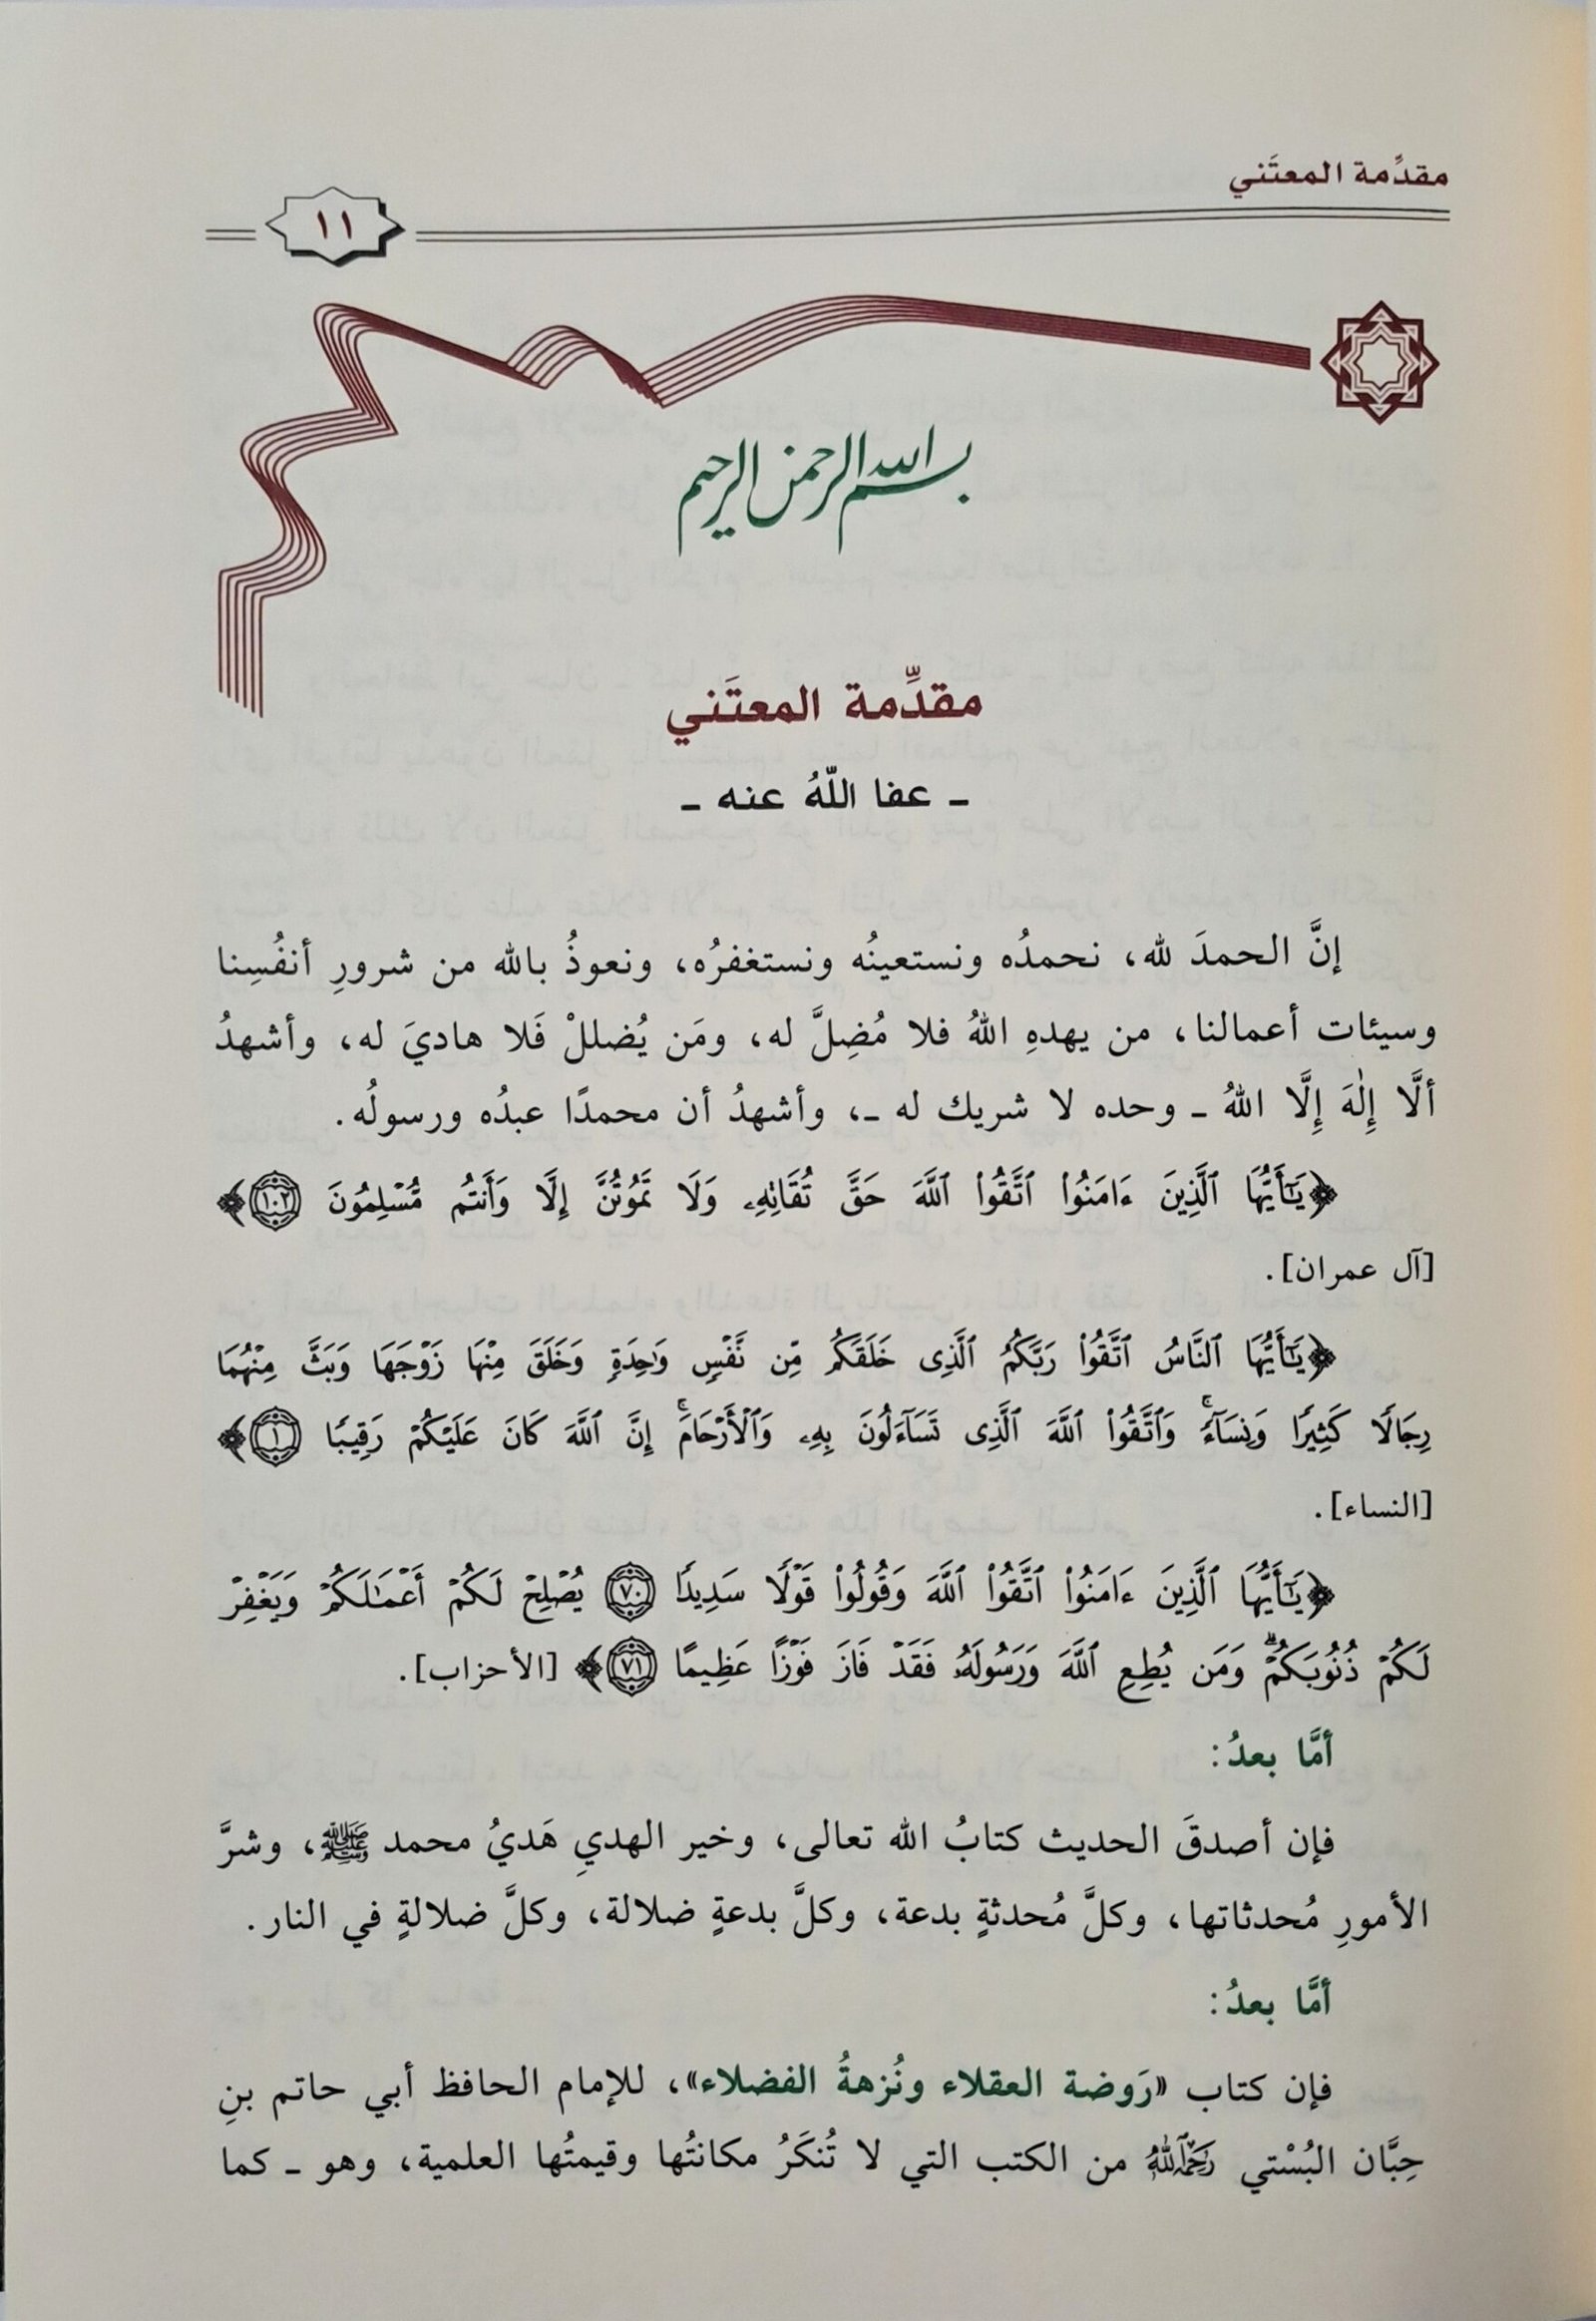 مقدِّمة المعتَني
١١
بسم الله الرحمن الرحيم
مقدِّمة المعتَني
ـ عفا اللّٰهُ عنه ـ
إنَّ الحمدَ لله، نحمدُه ونستعينُه ونستغفرُه، ونعوذُ بالله من شرورِ أنفُسِنا
وسيئات أعمالنا، من يهدهِ اللهُ فلا مُضِلَّ له، ومَن يُضللْ فَلا هاديَ له، وأشهدُ
ألَّا إِلٰهَ إِلَّا اللهُ ـ وحده لا شريك له ـ، وأشهدُ أن محمدًا عبدُه ورسولُه.
﴿يَٰٓأَيُّهَا ٱلَّذِينَ ءَامَنُوا۟ ٱتَّقُوا۟ ٱللَّهَ حَقَّ تُقَاتِهِۦ وَلَا تَمُوتُنَّ إِلَّا وَأَنتُم مُّسْلِمُونَ ١٠٢﴾
[آل عمران].
﴿يَٰٓأَيُّهَا ٱلنَّاسُ ٱتَّقُوا۟ رَبَّكُمُ ٱلَّذِى خَلَقَكُم مِّن نَّفْسٍ وَٰحِدَةٍ وَخَلَقَ مِنْهَا زَوْجَهَا وَبَثَّ مِنْهُمَا
رِجَالًا كَثِيرًا وَنِسَآءً ۚ وَٱتَّقُوا۟ ٱللَّهَ ٱلَّذِى تَسَآءَلُونَ بِهِۦ وَٱلْأَرْحَامَ ۚ إِنَّ ٱللَّهَ كَانَ عَلَيْكُمْ رَقِيبًا ١﴾
[النساء].
﴿يَٰٓأَيُّهَا ٱلَّذِينَ ءَامَنُوا۟ ٱتَّقُوا۟ ٱللَّهَ وَقُولُوا۟ قَوْلًا سَدِيدًا ٧٠ يُصْلِحْ لَكُمْ أَعْمَٰلَكُمْ وَيَغْفِرْ
لَكُمْ ذُنُوبَكُمْ ۗ وَمَن يُطِعِ ٱللَّهَ وَرَسُولَهُۥ فَقَدْ فَازَ فَوْزًا عَظِيمًا ٧١﴾ [الأحزاب].
أمَّا بعدُ:
فإن أصدقَ الحديث كتابُ الله تعالى، وخير الهديِ هَديُ محمد ﷺ، وشرَّ
الأمورِ مُحدثاتها، وكلَّ مُحدثةٍ بدعة، وكلَّ بدعةٍ ضلالة، وكلَّ ضلالةٍ في النار.
أمَّا بعدُ:
فإن كتاب «رَوضة العقلاء ونُزهةُ الفضلاء»، للإمام الحافظ أبي حاتم بنِ
حِبَّان البُسْتي رَحِمَهُ اللَّهُ من الكتب التي لا تُنكَرُ مكانتُها وقيمتُها العلمية، وهو ـ كما